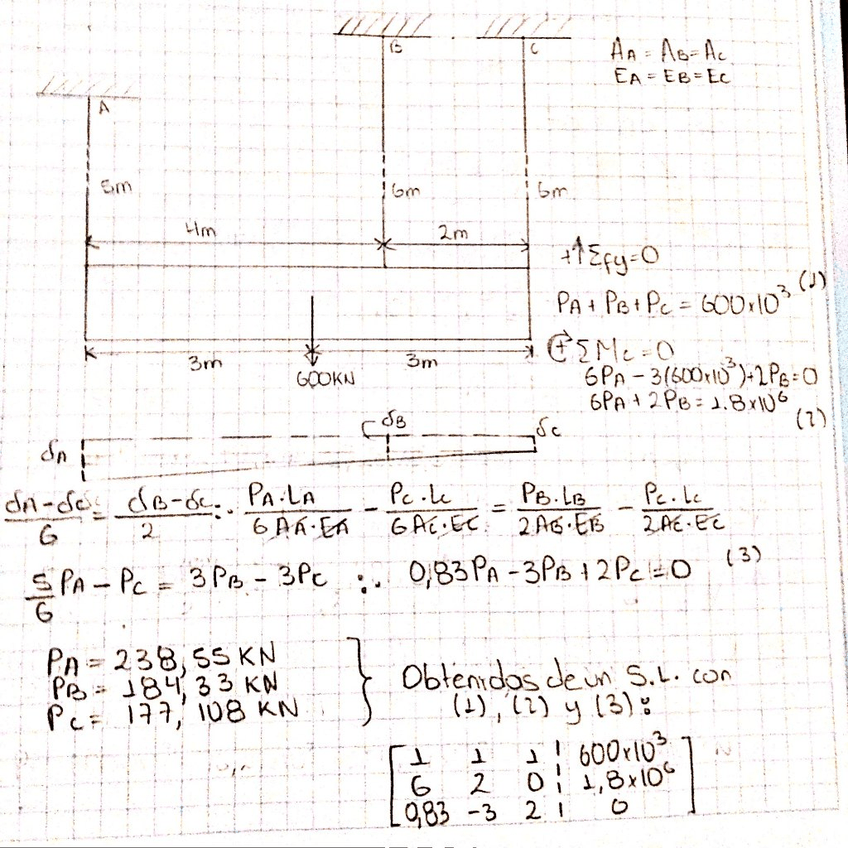 B
C
AA = AB = AC
EA = EB = EC
A
5m
6m
6m
4m
2m
+↑Σfy=0
PA + PB + PC = 600x10³ (1)
3m
3m
600KN
(+ ΣMc = 0
6PA - 3(600x10³)+2PB=0
6PA + 2PB = 1.8x10⁶
(2)
δA
δB
δC
δA-δC/6 = δB-δC/2 ∴ PA.LA/6AA.EA - PC.LC/6AC.EC = PB.LB/2AC.EB - PC.LC/2AC.EC
5/6 PA - PC = 3PB - 3PC ∴ 0,83PA - 3PB + 2PC = 0 (3)
PA = 238,55 KN
PB = 184,33 KN
PC = 177,108 KN
Obtenidos de un S.L. con
(1), (2) y (3):
1 1 1 | 600x10³
6 2 0 | 1,8x10⁶
0,83 -3 2 | 0